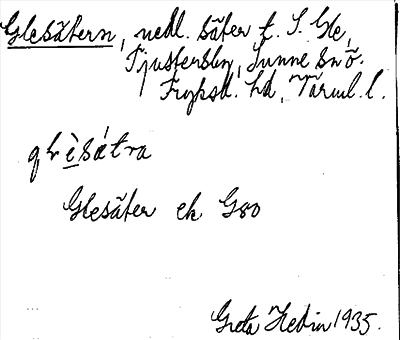 Glesätern, nedl. säter t. S. Gle,
Tjustersbyn, Sunne sn ö.
Fryksd. hd, Värml. l.
glèsátra
Glesäter ek G80
Greta Hedin 1935.